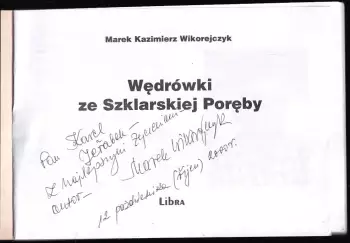 Marek Kazimierz Wikorejczyk
Wędrówki
ze Szklarskiej Poręby
Pan Karel
Jeřábek –
z najlepszymi życzeniami
autor – Marek Wikorejczyk
12 października (říjen)
LIBRA